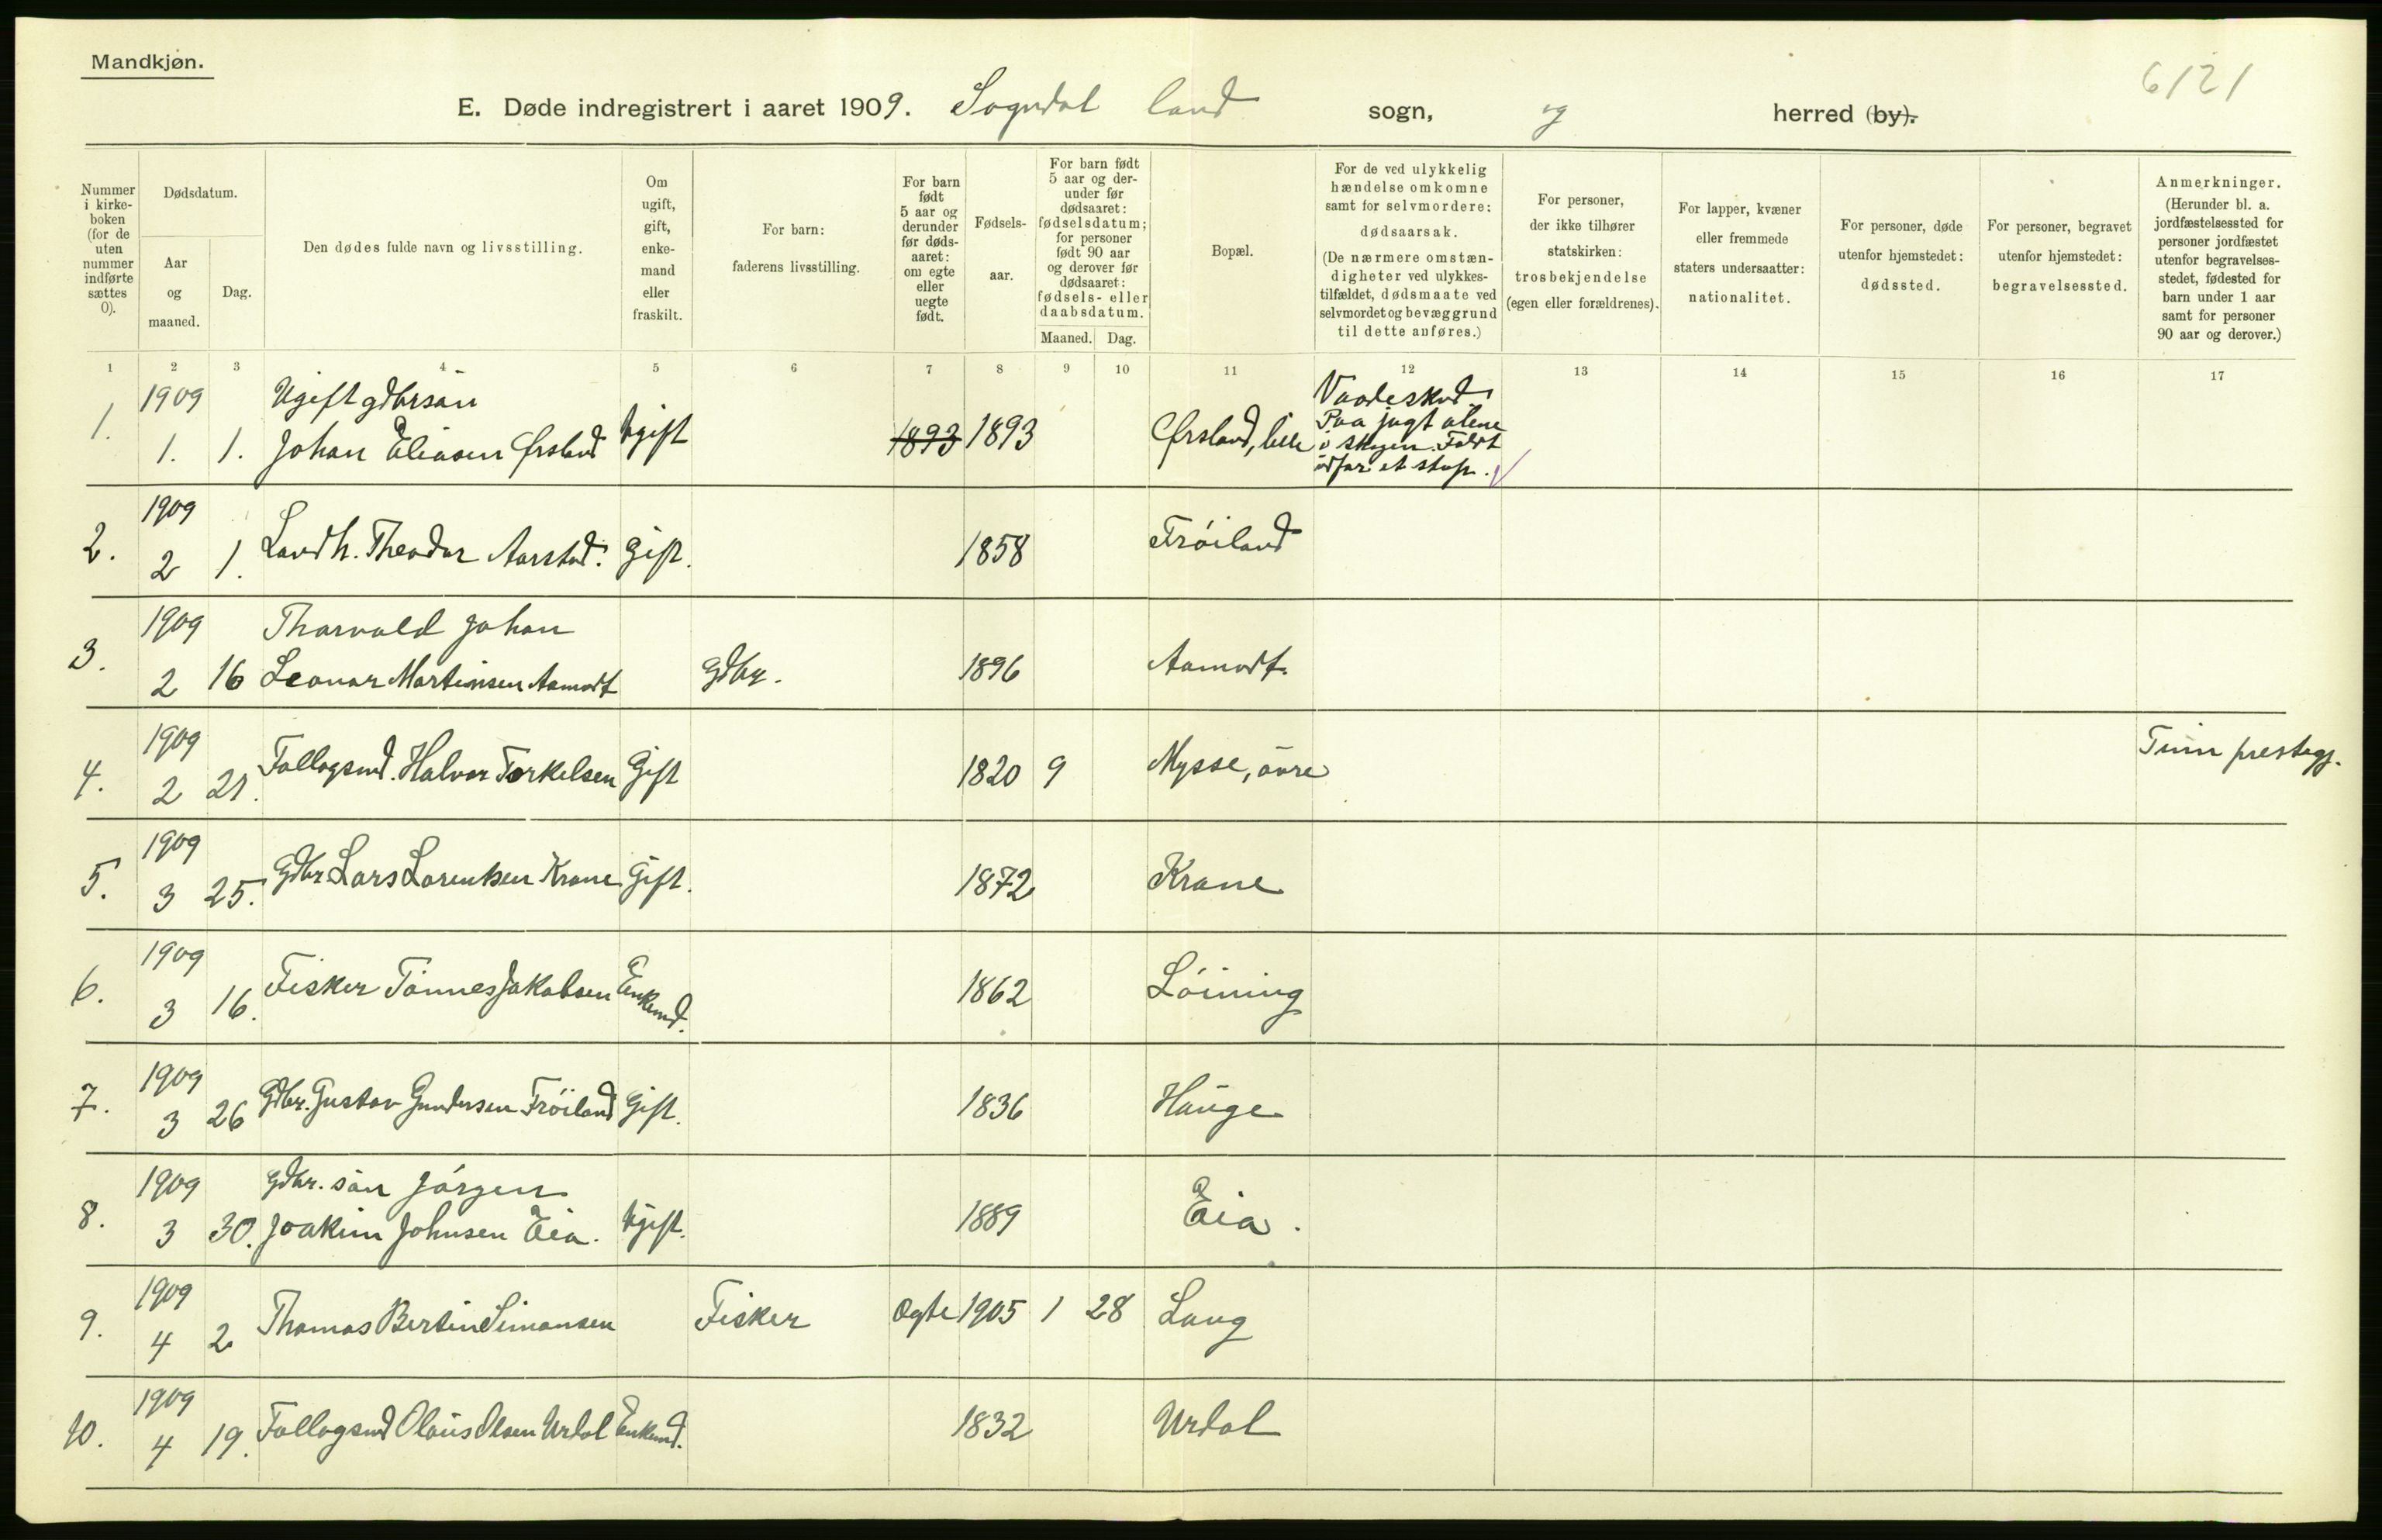 Mandkjøn.
6121
E. Døde indregistrert i aaret 1909. Sogndal land sogn, og herred (by).
Nummer i kirke-boken (for de uten nummer indførte sættes 0).
Dødsdatum.
Aar og maaned.
Dag.
Den dødes fulde navn og livsstilling.
Om ugift, gift, enke-mand eller fraskilt.
For barn: faderens livsstilling.
For barn født 5 aar og derunder før døds-aaret: om egte eller uegte født.
Fødsels-aar.
For barn født 5 aar og der-under før dødsaaret: fødselsdatum; for personer født 90 aar og derover før dødsaaret: fødsels- eller daabsdatum.
Maaned. Dag.
Bopæl.
For de ved ulykkelig hændelse omkomne samt for selvmordere: dødsaarsak.
(De nærmere omstæn-digheter ved ulykkes-tilfældet, dødsmaate ved selvmordet og bevæggrund til dette anføres.)
For personer, der ikke tilhører statskirken: trosbekjendelse (egen eller forældrenes).
For lapper, kvæner eller fremmede staters undersaatter: nationalitet.
For personer, døde utenfor hjemstedet: dødssted.
For personer, begravet utenfor hjemstedet: begravelsessted.
Anmerkninger.
(Herunder bl. a. jordfæstelsessted for personer jordfæstet utenfor begravelses-stedet, fødested for barn under 1 aar samt for personer 90 aar og derover.)
1 2 3 4 5 6 7 8 9 10 11 12 13 14 15 16 17
1909 Ugift gdbrsön Vaadeskud
1. 1. 1. Johan Eliasen Ørsland Ugift 1893 1893 Ørsland, lille Paa jagt alene
i skogen. Faldt
udfor et stup.
1909
2. 2 1. Landh. Theodor Aarstad. Gift. 1858 Fröiland
1909 Thorvald Johan
3. 2 16 Leonar Martinsen Aamodt Gdbr. 1896 Aamodt.
1909
4. 2 21. Follogsmd. Halvor Torkelsen Gift 1820 9 Mysse, övre Tinn prestegj.
1909
5. 3 25. Gdbr Lars Lorentsen Krane Gift. 1872 Krane
1909
6. 3 16. Fisker Tönnes Jakobsen Enkemd. 1862 Löining
1909
7. 3 26 Gdbr. Gustav Gundersen Fröiland Gift. 1836 Hauge
1909 Gdbr. sön Jörgen
8. 3 30. Joakim Johnsen Eia. Ugift. 1889 Eia.
1909
9. 4 2 Thomas Bertin Simonsen Fisker Ægte 1905 1 28 Laug
1909
10. 4 19. Follogsmd Olaus Olsen Urdal Enkemd. 1832 Urdal